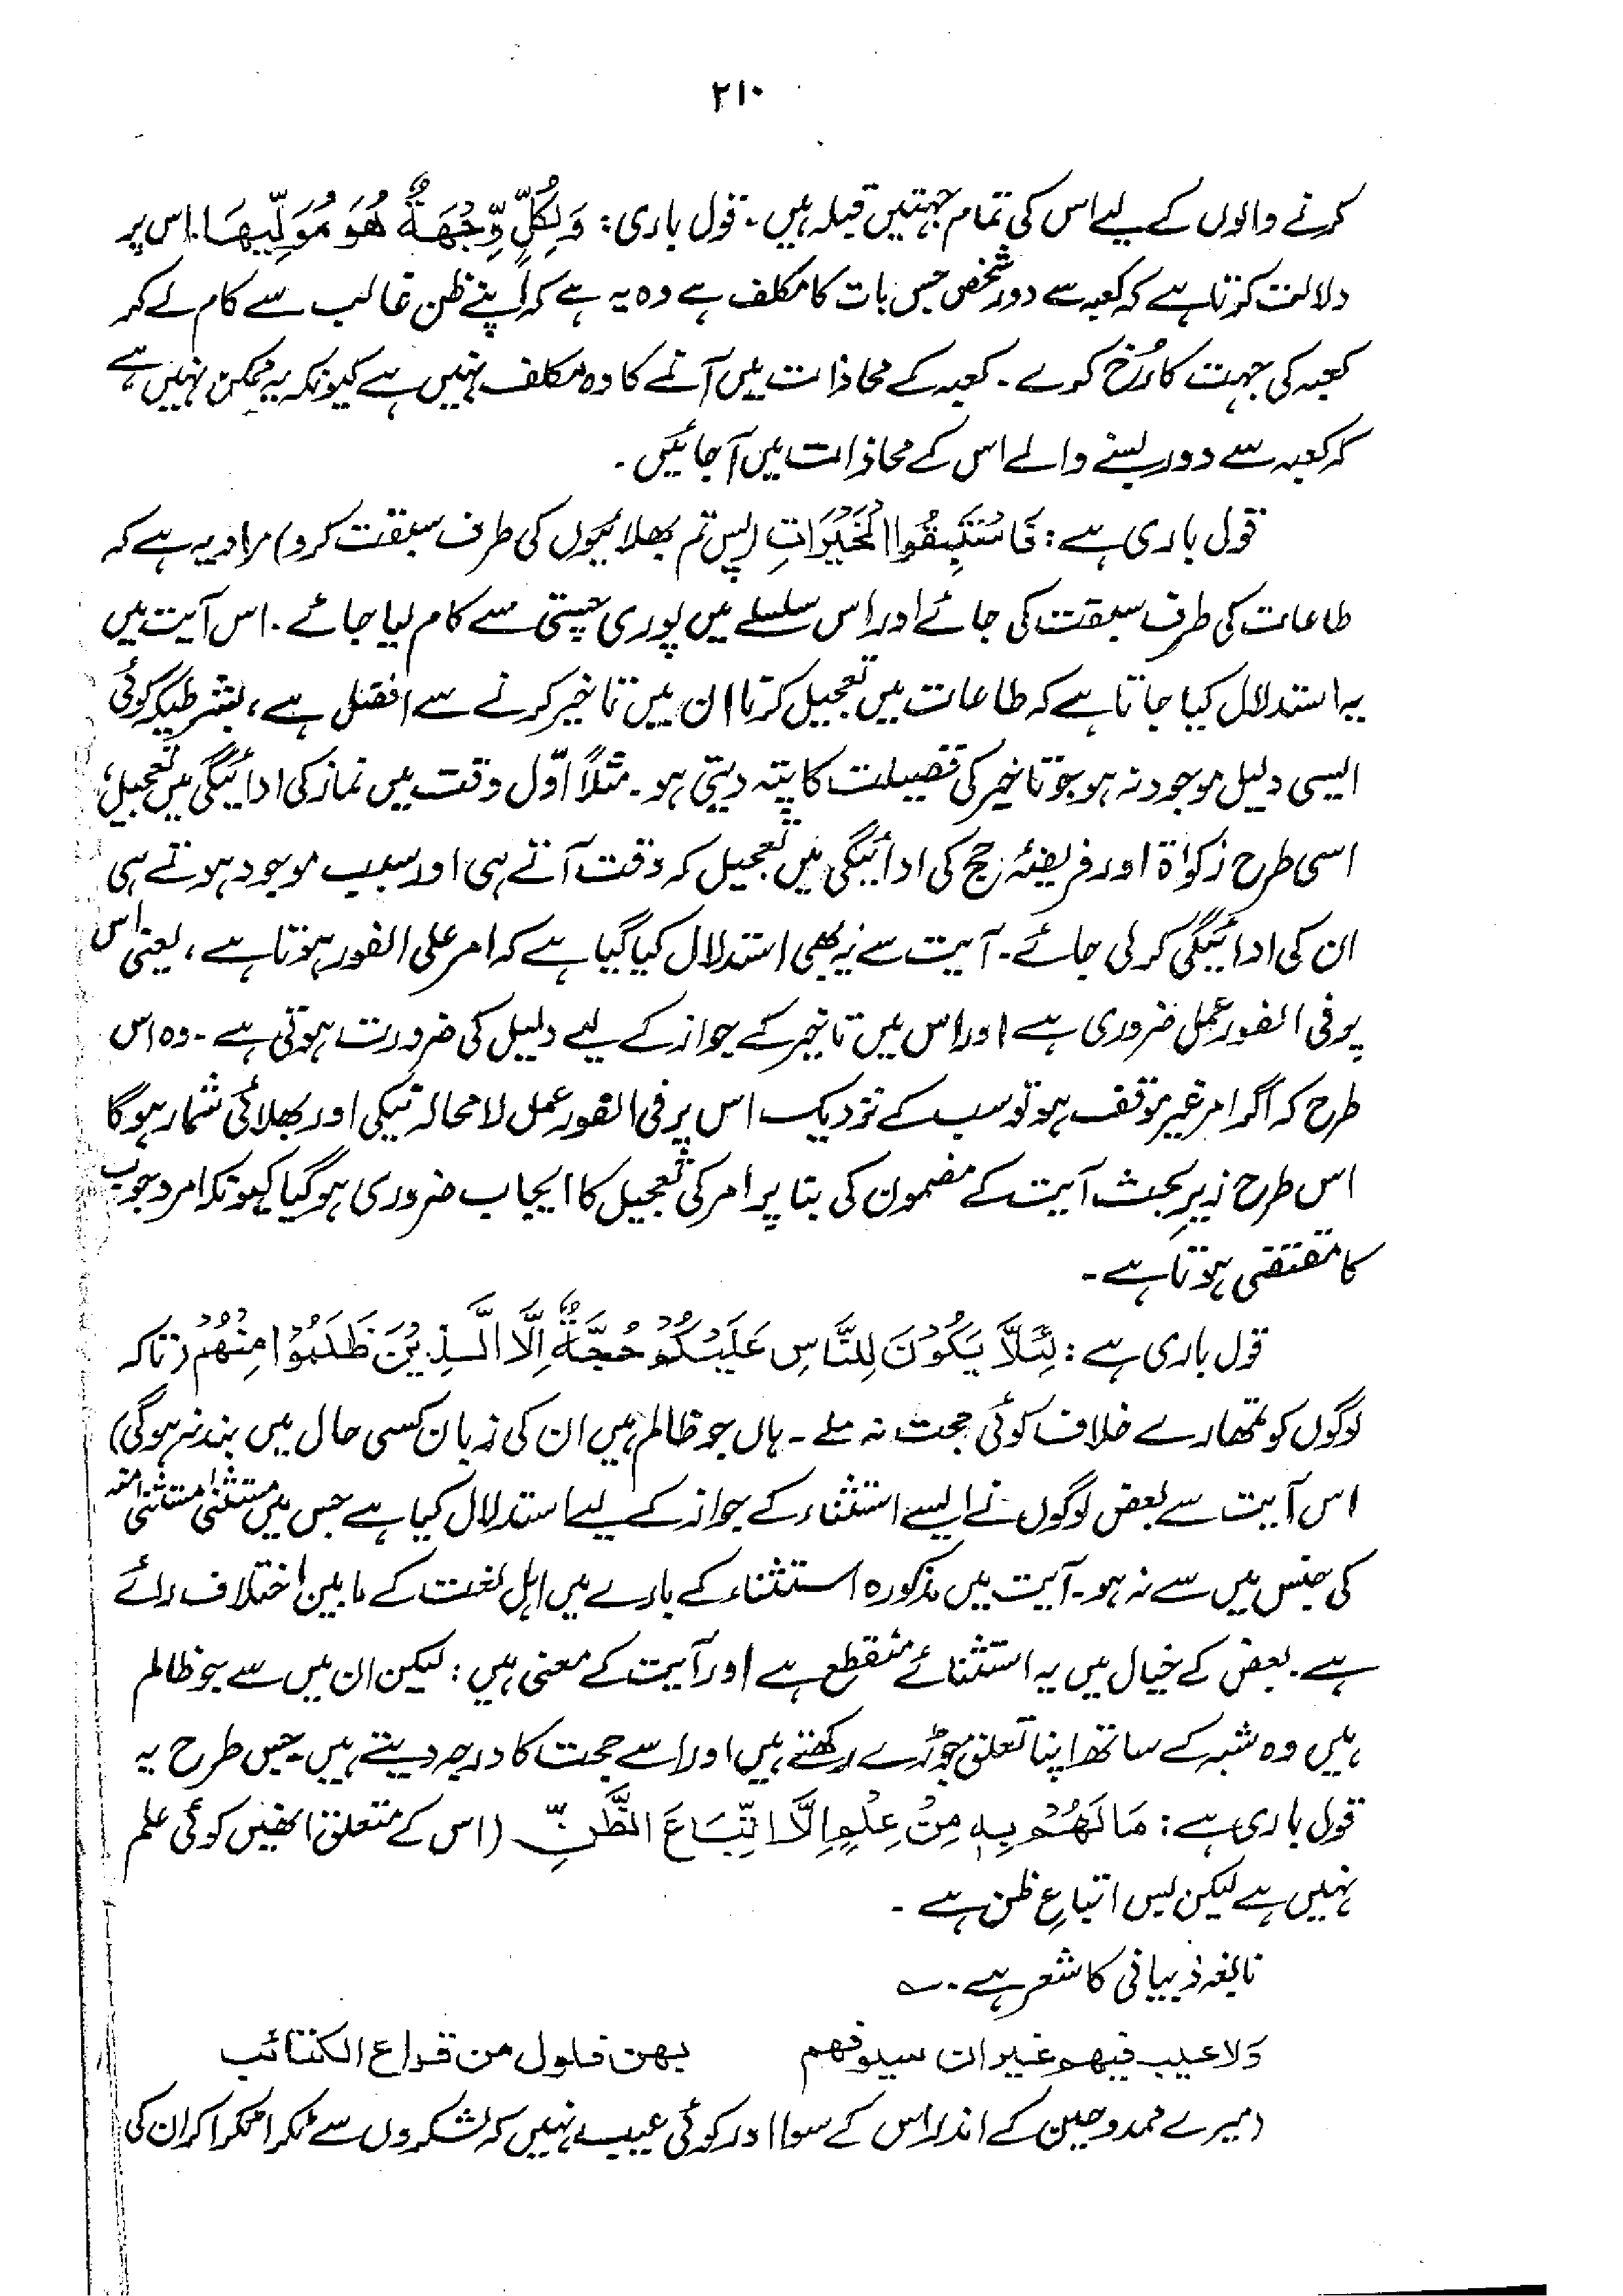 ۲۱۰
کرنے والوں کے لیے اس کی تمام جہتیں قبلہ ہیں۔ قول باری: وَلِكُلٍّ وِّجْهَةٌ هُوَ مُوَلِّيهَا. اس پر
دلالت کرتا ہے کہ کعبہ سے دور شخص جس بات کا مکلف ہے وہ یہ ہے کہ اپنے ظن غالب سے کام لے کر
کعبہ کی جہت کا رُخ کرے۔ کعبہ کے محاذات میں آنے کا وہ مکلف نہیں ہے کیونکہ یہ ممکن نہیں ہے
کہ کعبہ سے دور بسنے والے اس کے محاذات میں آ جائیں۔
قول باری ہے: فَاسْتَبِقُوا الْخَيْرَاتِ (پس تم بھلائیوں کی طرف سبقت کرو) مراد یہ ہے کہ
طاعات کی طرف سبقت کی جائے اور اس سلسلے میں پوری چستی سے کام لیا جائے۔ اس آیت میں
یہ استدلال کیا جاتا ہے کہ طاعات میں تعجیل کرنا ان میں تاخیر کرنے سے افضل ہے، بشرطیکہ کوئی
ایسی دلیل موجود نہ ہو جو تاخیر کی فضیلت کا پتہ دیتی ہو۔ مثلاً اوّل وقت میں نماز کی ادائیگی میں تعجیل،
اسی طرح زکوٰۃ اور فریضۂ حج کی ادائیگی میں تعجیل کہ وقت آتے ہی اور سبب موجود ہوتے ہی
ان کی ادائیگی کر لی جائے۔ آیت سے یہ بھی استدلال کیا گیا ہے کہ امر علی الفور ہوتا ہے، یعنی اس
پر فی الفور عمل ضروری ہے اور اس میں تاخیر کے جواز کے لیے دلیل کی ضرورت ہوتی ہے۔ وہ اس
طرح کہ اگر امر غیر موقف ہو تو سب کے نزدیک اس پر فی الفور عمل لامحالہ نیکی اور بھلائی شمار ہو گا
اس طرح زیرِ بحث آیت کے مضمون کی بنا پر امر کی تعجیل کا ایجاب ضروری ہو گیا کیونکہ امر وجوب
کا مقتضی ہوتا ہے۔
قول باری ہے: لِئَلَّا يَكُوْنَ لِلنَّاسِ عَلَيْكُمْ حُجَّةٌ اِلَّا الَّذِيْنَ ظَلَمُوْا مِنْهُمْ (تاکہ
لوگوں کو تمھارے خلاف کوئی حجت نہ ملے۔ ہاں جو ظالم ہیں ان کی زبان کسی حال میں بند نہ ہو گی)
اس آیت سے بعض لوگوں نے ایسے استثناء کے جواز کے لیے استدلال کیا ہے جس میں مستثنیٰ مستثنیٰ منہ
کی جنس میں سے نہ ہو۔ آیت میں مذکورہ استثناء کے بارے میں اہل لغت کے مابین اختلاف رائے
ہے۔ بعض کے خیال میں یہ استثنائے منقطع ہے اور آیت کے معنی ہیں: لیکن ان میں سے جو ظالم
ہیں وہ شبہ کے ساتھ اپنا تعلق جوڑے رکھتے ہیں اور اسے حجت کا درجہ دیتے ہیں۔ جس طرح یہ
قول باری ہے: مَا لَهُمْ بِهٖ مِنْ عِلْمٍ اِلَّا اتِّبَاعَ الظَّنِّ (اس کے متعلق انھیں کوئی علم
نہیں ہے لیکن بس اتباعِ ظن ہے۔
نابغہ ذبیانی کا شعر ہے۔ ؎
ولا عيب فيهم غير ان سيوفهم بهن فلول من قراع الكتائب
(میرے ممدوحین کے اندر اس کے سوا اور کوئی عیب نہیں کہ لشکروں سے ٹکرا ٹکرا کر ان کی